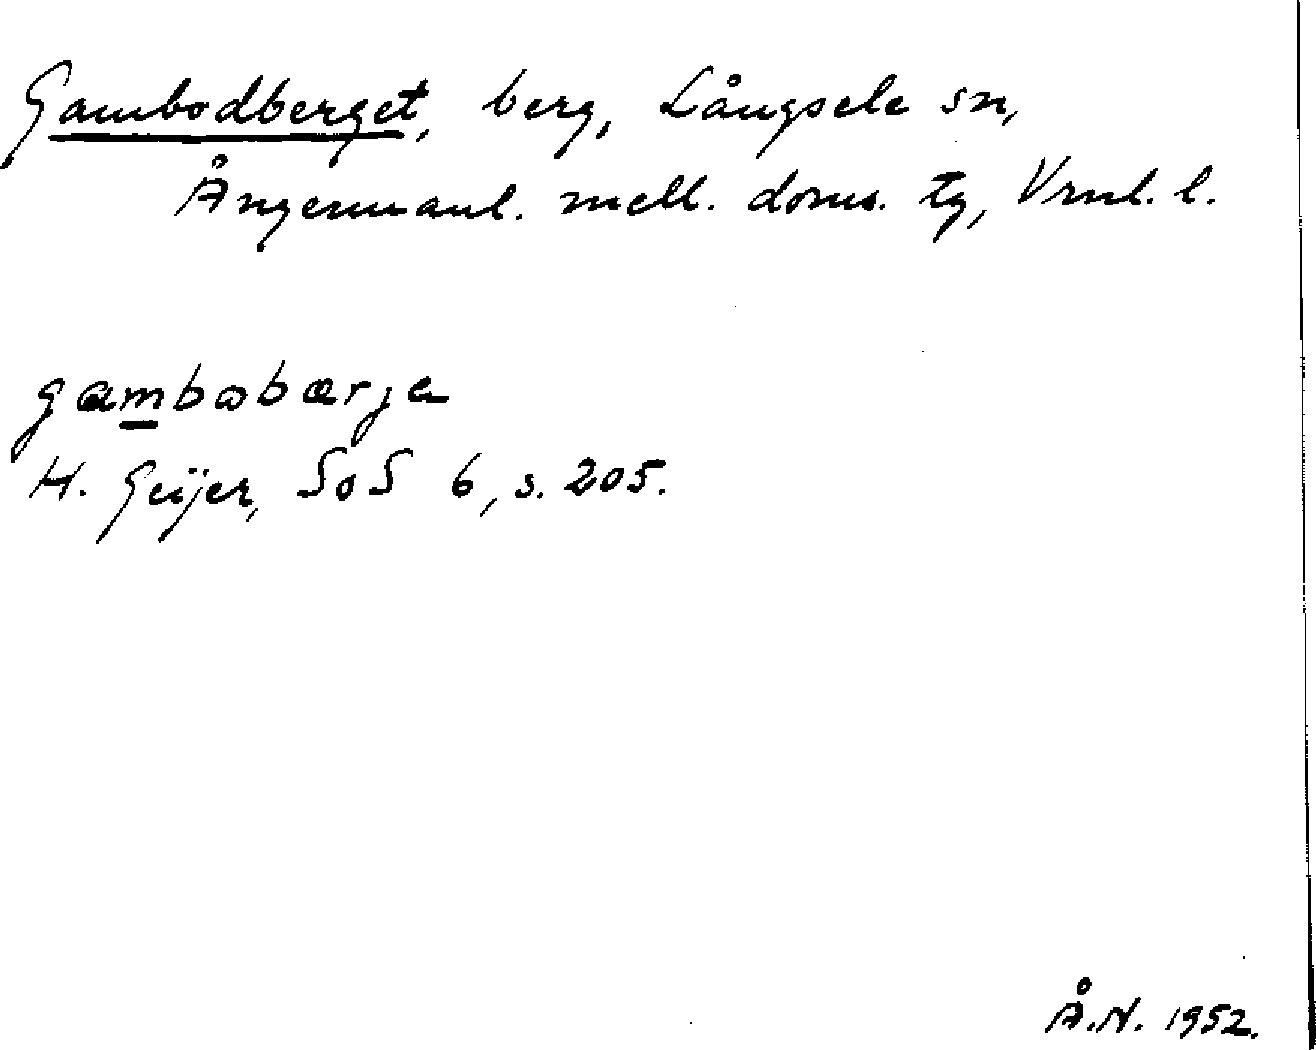 Gambodberget, berg, Långsele sn,
Ångermanl. mell. doms. tg, Vrnl. l.
gambobærja
H. Geijer, SoS 6, s. 205.
Å.N. 1952.